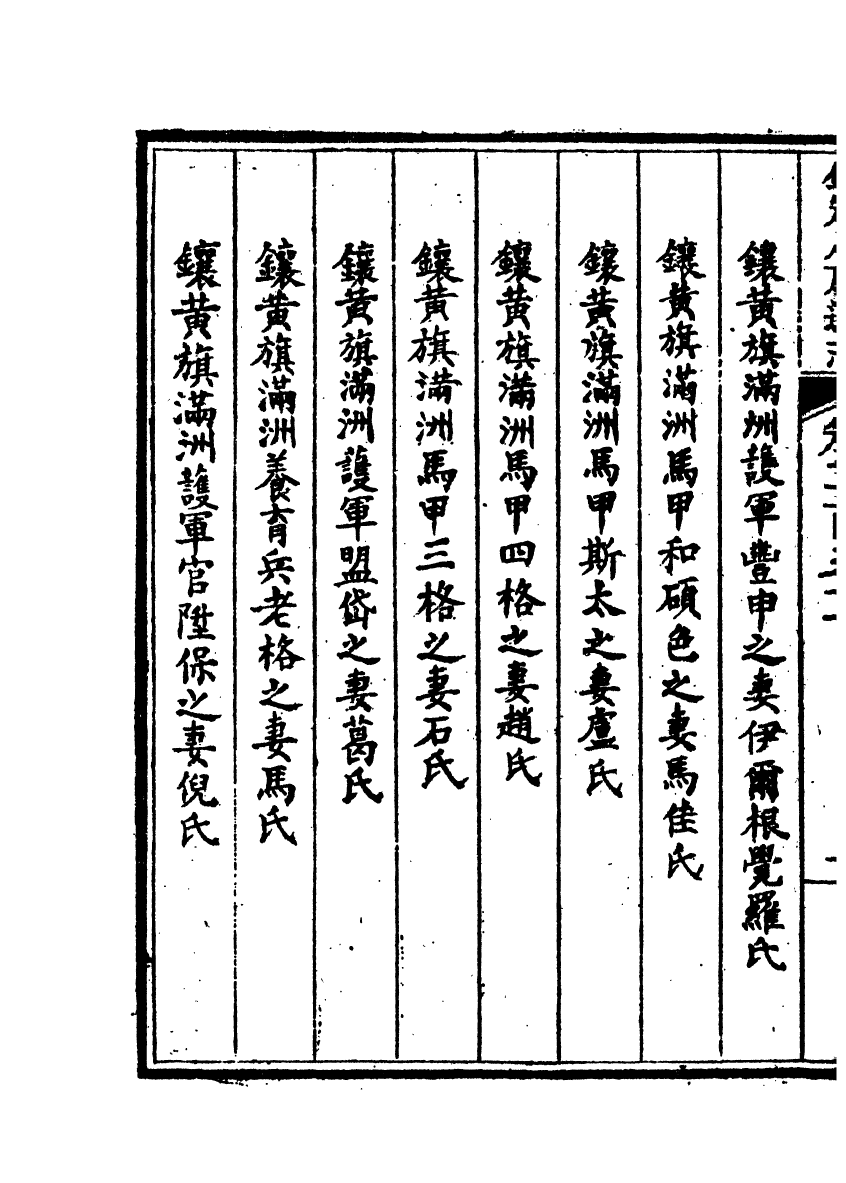 鑲黄旗滿洲護軍豐申之妻伊爾根覺羅氏
鑲黄旗滿洲馬甲和碩色之妻馬佳氏
鑲黄旗滿洲馬甲斯太之妻盧氏
鑲黄旗滿洲馬甲四格之妻趙氏
鑲黄旗滿洲馬甲三格之妻石氏
鑲黄旗滿洲護軍盟岱之妻葛氏
鑲黄旗滿洲養育兵老格之妻馬氏
鑲黄旗滿洲護軍官陞保之妻倪氏